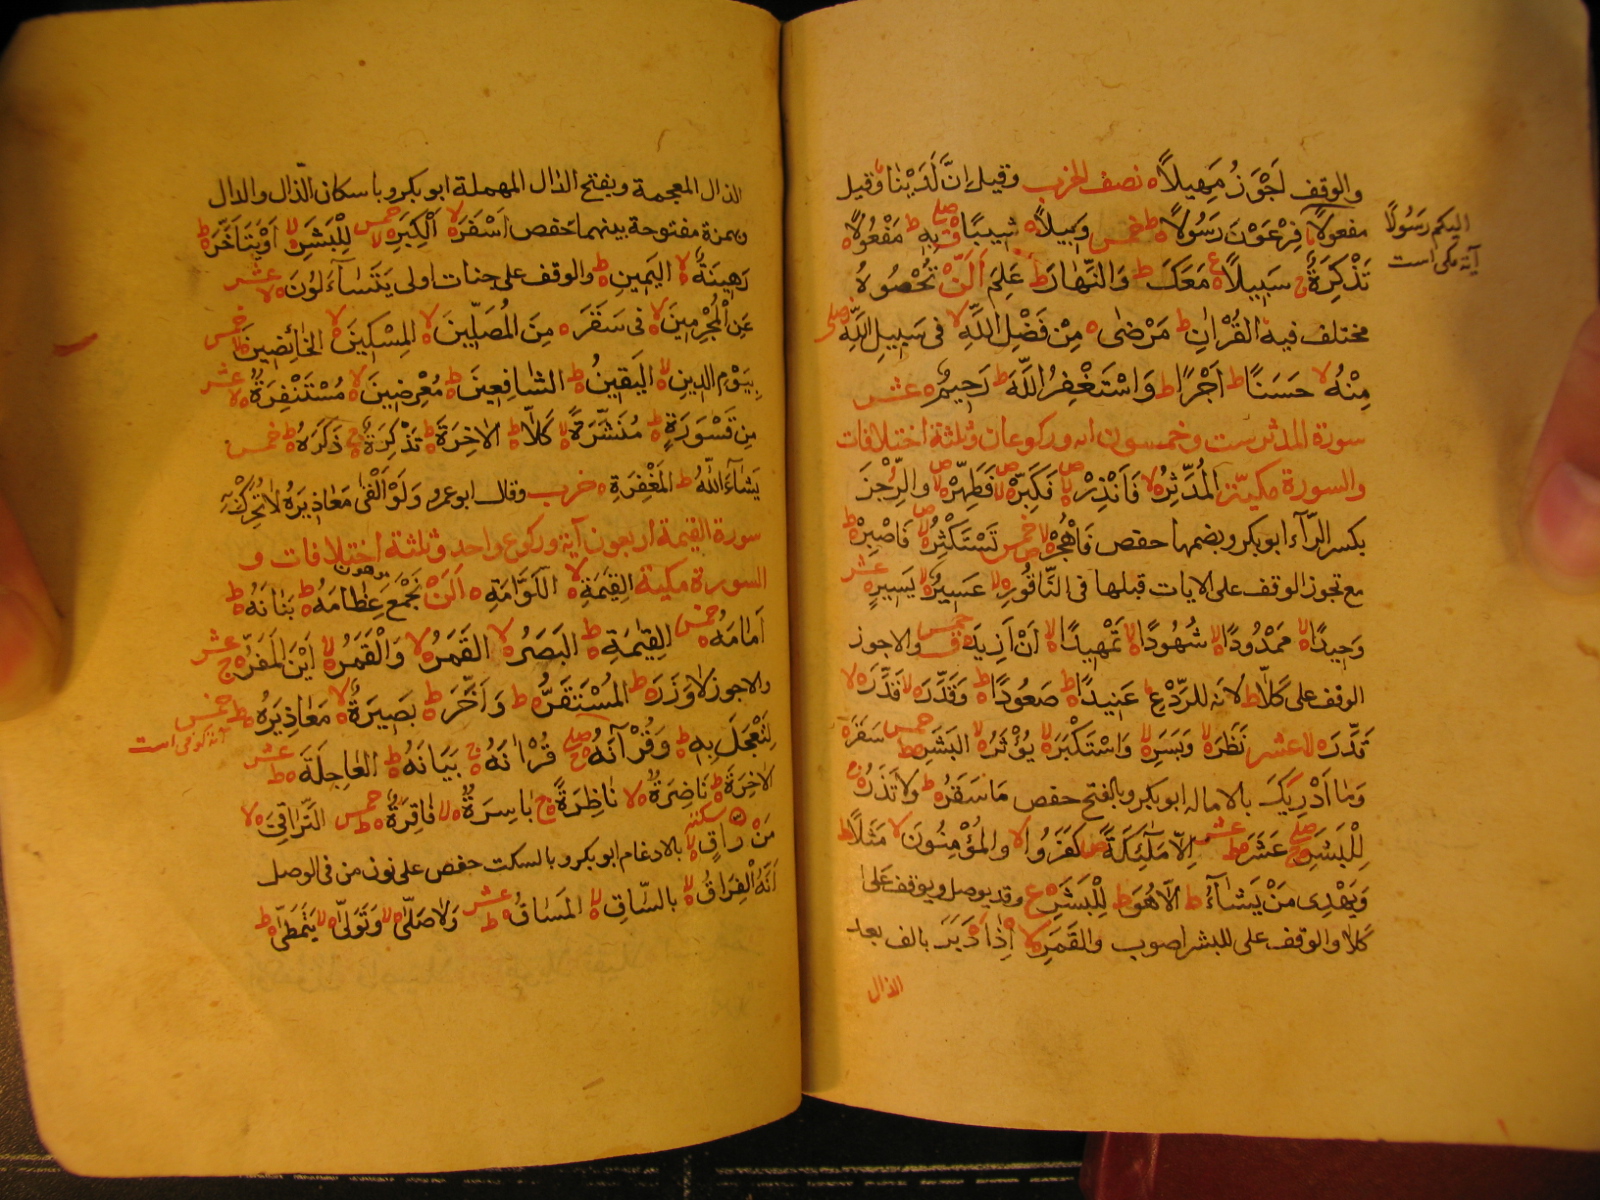 والوقف اجوز مَهِيلًاه نصف الحزب وقيل اِنَّ لَدَيْنَا وقيل
مفعولًا فِرْعَوْنَ رَسُولًاه ط خمس وَبِيلًاه شِيبًا بِهِ ط مَفْعُولًاه
تَذْكِرَةٌ ج سَبِيلًاه ع مَعَكَ ط وَالنَّهَارَ ط عَلِمَ اَلَنْ تُحْصُوهُ
مختلف فيه القُرْاٰنِ ط مَرْضٰى ه مِنْ فَضْلِ اللّٰهِ لا فى سَبِيلِ اللّٰهِ صلى
مِنْهُ لا حَسَنًا ط اَجْرًا ط وَاسْتَغْفِرُ اللّٰهَ ط رَحِيمٌ ه عشر
سورة المدثر ست وخمسون ايه وركوعان وثلثة اختلافات
والسورة مكيّة المُدَّثِّرُ لا فَاَنْذِرْ ص فَكَبِّرْ ص فَطَهِّرْ ص والرِّجْزَ
بكسر الرّآء ابوبكر وبضمها حفص فَاهْجُرْ خمس تَسْتَكْثِرُ فَاصْبِرْ ط
مع تجوز الوقف على الايات قبلها فى النَّاقُورِ لا عَسِيرٌ لا يَسِيرٍ عشر
وَحِيدًا لا مَمْدُودًا لا شُهُودًا لا تَمْهِيدًا لا اَنْ اَزِيدَ خمس والاجوز
الوقف على كَلَّا ط لانه للرّدْعِ عَنِيدًا ط صَعُودًا ط وَقَدَّرَ لا قَدَّرَ لا
قَدَّرَ لا عشر نَظَرَ لا وَبَسَرَ لا وَاسْتَكْبَرَ لا يُؤْثَرُ لا البَشَرِ خمس سَقَرَ
وَمَا اَدْرٰيكَ بالاماله ابوبكر وبالفتح حفص مَا سَقَرُ ط وَلَا تَذَرُ ج
لِلْبَشَرِ عَشَرَ عشر اِلَّا مَلٰٓئِكَةً ص كَفَرُوا لا والمُؤْمِنُونَ لا مَثَلًا ط
وَيَهْدِى مَنْ يَشَآءُ ط اِلَّا هُوَ ط لِلْبَشَرِ ع وقد يوصل ويوقف على
كلا والوقف على للبشر اصوب والقَمَرِ لا اِذَا دَبَرَ بالف بعد
الذال
اليكم رَسُولًا
آية مكى است
الذال المعجمة وبفتح الدال المهملة ابوبكر وباسكان الذال والدال
وبهمزة مفتوحة بينهما حفص اَسْفَرَ لا الْكُبَرِ خمس لِلْبَشَرِ لا اَوْ يَتَاَخَّرَ ط
رَهِينَةٌ لا اليَمِينِ ط والوقف على جنات اولى يَتَسَآءَلُونَ عشر
عَنِ الْمُجْرِمِينَ لا فى سَقَرَ ه مِنَ المُصَلِّينَ لا المِسْكِينَ لا الخَآئِضِينَ خمس
بِيَوْمِ الدِينِ لا اليَقِينُ ط الشَافِعِينَ ط مُعْرِضِينَ لا مُسْتَنْفِرَةٌ عشر
مِن قَسْوَرَةٍ ط مُنَشَّرَةً لا كَلَّا ط الاٰخِرَةَ ط تَذْكِرَةٌ ج ذَكَرَهُ ط خمس
يَشَاءَ اللّٰهُ ط المَغْفِرَةِ ه حزب وقال ابوعمرو وَلَوْ اَلْقٰى مَعَاذِيرَهُ لَا تُحَرِّكْ بِهِ
سورة القيٰمة اربعون آية وركوع واحد وثلثة اختلافات و
السورة مكية القِيٰمَةِ لا اللَّوَّامَةِ ه اَلَنْ نَجْمَعَ عِظَامَهُ ط بَنَانَهُ ط
اَمَامَهُ خمس القِيٰمَةِ ط البَصَرُ لا القَمَرُ لا وَالْقَمَرُ لا اَيْنَ المَفَرُّ ج عشر
والاجوز لَا وَزَرَ ط المُسْتَقَرُّ ط وَاَخَّرَ ط بَصِيرَةٌ لا مَعَاذِيرَهُ ط خمس
آية كوفى است
لِتَعْجَلَ بِهِ ط وَقُرْآنَهُ صلى قُرْاٰنَهُ ج بَيَانَهُ ط العَاجِلَةَ عشر
الاٰخِرَةَ ط نَاضِرَةٌ لا نَاظِرَةٌ ج بَاسِرَةٌ لا فَاقِرَةٌ خمس التَّرَاقِىَ لا
مَنْ سكته رَاقٍ لا بالادغام ابوبكر وبالسكت حفص على نون من فى الوصل
اَنَّهُ الْفِرَاقُ لا بالسَّاقِ لا المَسَاقُ عشر وَلَا صَلّٰى لا وَتَوَلّٰى لا يَتَمَطّٰى ط